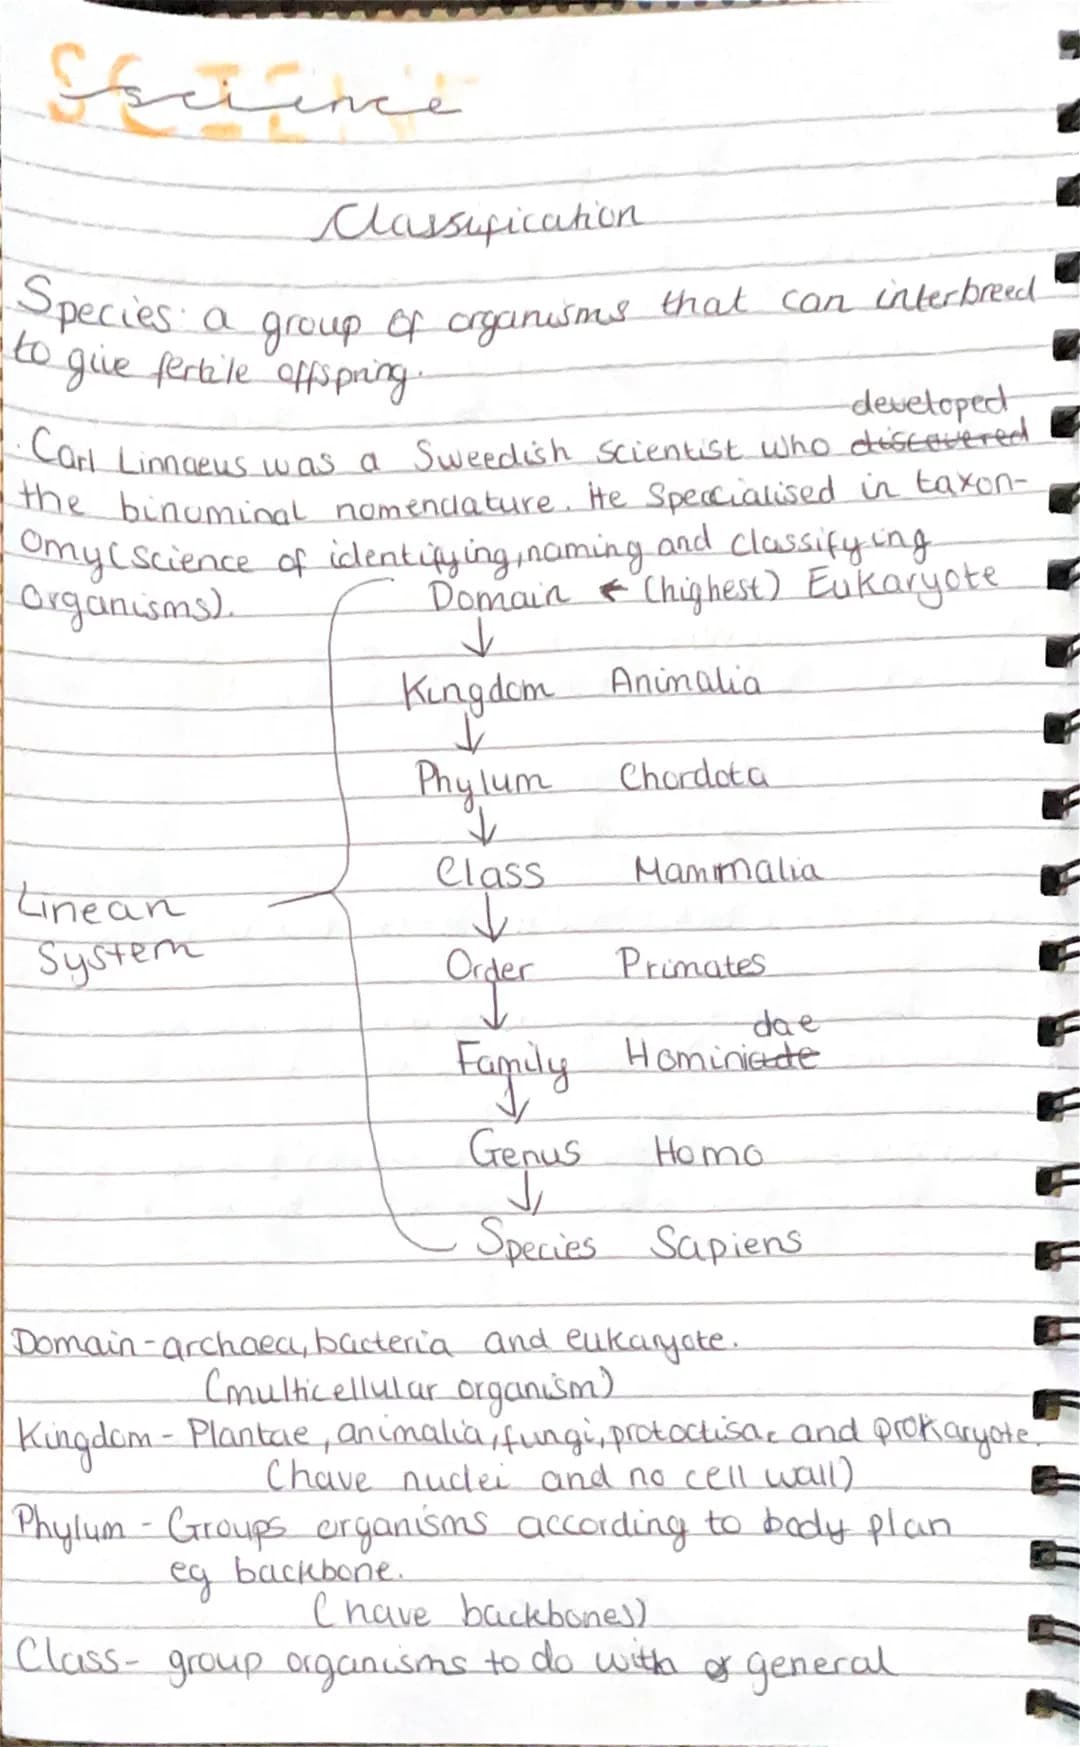 Science
Classification
Species: a group of organisms that can interbreed
to give fertile offspring.
developed
. Carl Linnaeus was a Sweedish scientist who discovered
the binominal nomenclature. He Speccialised in taxon-
omy(science of identifying, naming and classifying
organisms).
Domain ← (highest) Eukaryote
↓
Kingdom Animalia
↓
Phylum Chordota
↓
Class Mammalia
Linean
System
↓
Order Primates
↓
dae
Family Hominiade
↓
Genus Homo
↓
Species Sapiens
Domain - archaea, bacteria and eukaryote.
(multicellular organism)
Kingdom - Plantae, animalia, fungi, protoctisae and prokaryote.
(have nuclei and no cell wall)
Phylum - Groups organisms according to body plan
eg backbone.
(have backbones)
Class - group organisms to do with general